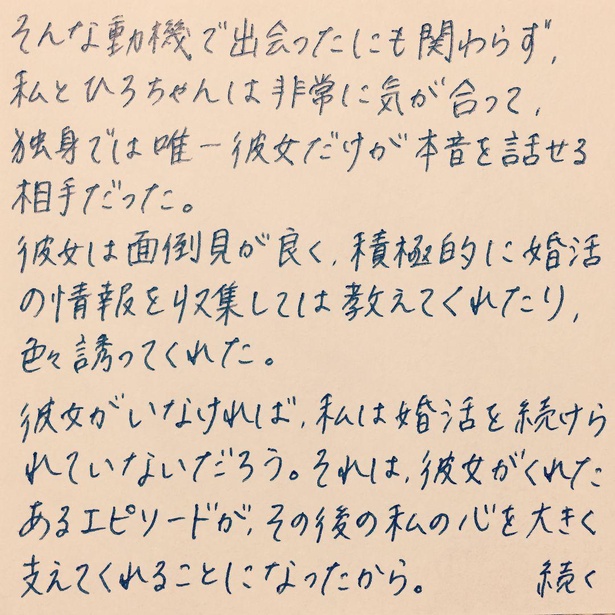 そんな動機で出会ったにも関わらず,
私とひろちゃんは非常に気が合って,
独身では唯一彼女だけが本音を話せる
相手だった。
彼女は面倒見が良く,積極的に婚活
の情報を収集しては教えてくれたり,
色々誘ってくれた。
彼女がいなければ,私は婚活を続けら
れていないだろう。それは,彼女がくれた
あるエピソードが,その後の私の心を大きく
支えてくれることになったから。 続く